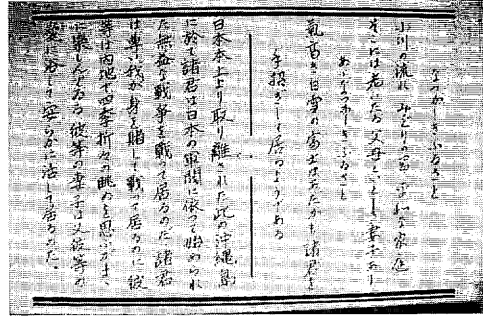 なつかしきふるさと
小川の流れ みどりの畑 平和な家庭
そこには老いたる父母といとしき妻子あり
あゝなつかしきふるさと
気高き白雪の富士はあたかも諸君を
手招きして居るようである
日本本土より取り離された此の沖縄島
に於て諸君は日本の軍閥に依って始められ
た無益な戦争を戦って居るのだ 諸君
は尊い我が身を賭して戦って居るのに彼
等は内地で四季折々の眺めを思ふがまゝ
に楽しんでゐる 彼等の妻子は父彼等の
愛に浴して安らかに活して居るのだ、